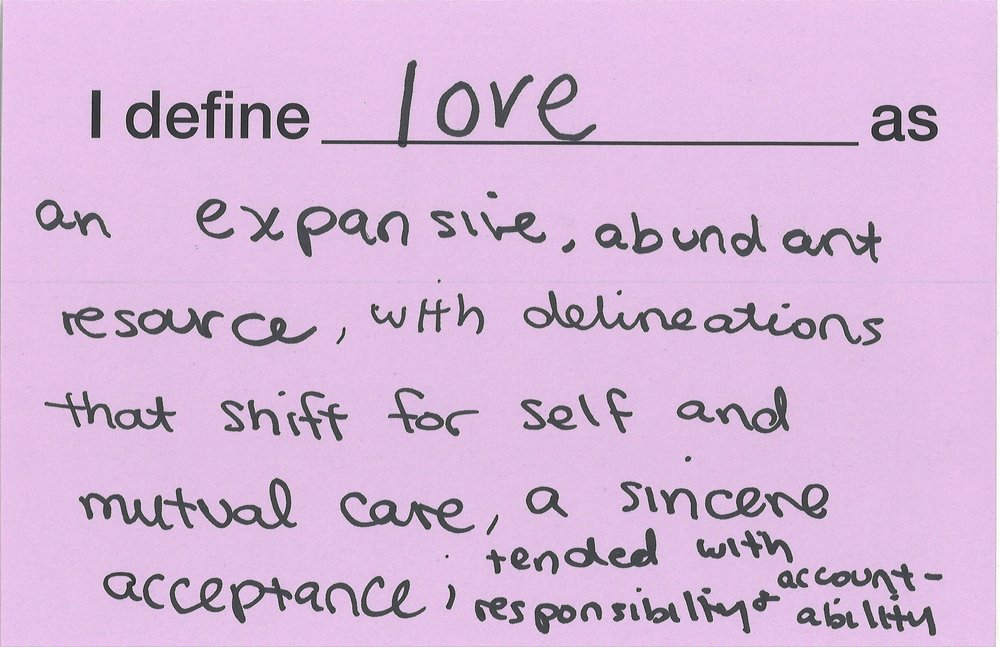 I define love as
an expansive, abundant
resource, with delineations
that shift for self and
mutual care, a sincere
acceptance; tended with
responsibility & account-
ability